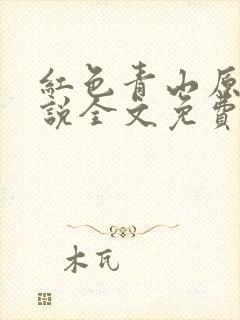 紅色青山原
說全文免費
木瓦